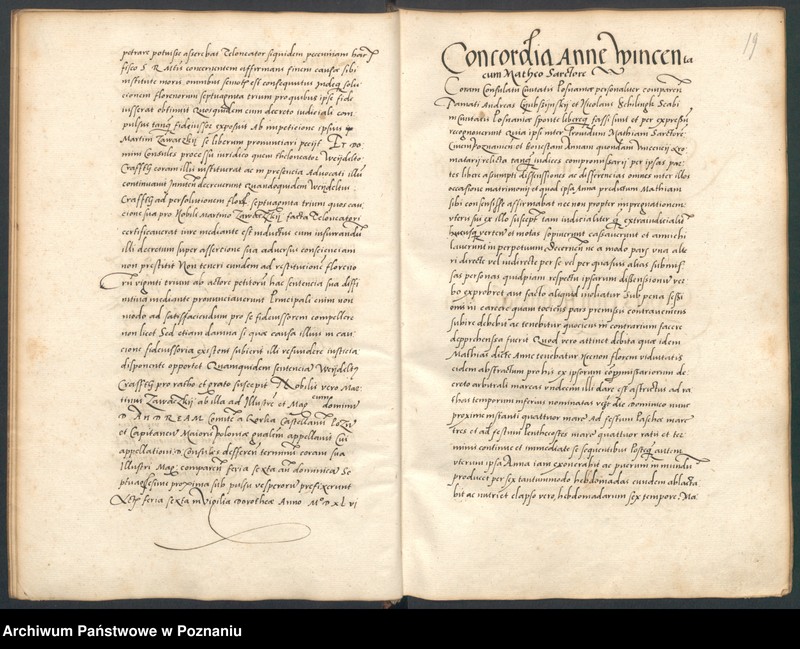 petrare potuisse asserebat Teloneator siquidem pecuniam hanc
fisco S R Mattis concernentem affirmans finem causae sibi
institute mori omnibus
cionem florenorum septuaginta trium pro quibus ipse fide
iusserat obtinuit quosquidem cum decreto iudiciali com
pulsus tanq fideiussor exposuit Ab impeticione ipsius
Martini Zawaczkij se liberum pronunciari peciit Et Do
mini Consules processu iuridico quem theloneator Weijdelto
Craffth coram illis instituerat ac in presencia Advocati illius
continuavit inuenten decreverunt quandoquidem Weijdeltus
Craffth ad persolutionem flor septuaginta trium quos cau
cione sua pro Nobili Martino Zawaczkij facta Teloneatori
certificaverat iure mediante est inductus cum insurrandus
illi decretum super assercione sua adversus conscienciam
non prestitit Non teneri eundem ad restitucione floreno
rum viginti trium ab actore petitorum hac sentencia sua diffi
nitiva mediante pronunciaverunt Principali enim non
modo ad satisfaciendum pro se fideiussorem compellere
non licet Sed etiam damna si quae causa illius in cau
cione fideiussoria existens subierit illi refundere iusticia
disponente oportet Quamquidem sentencia Weijdelth
Craffth pro ratho et grato suscepit Nobilis vero Mar
tinus Zawaczkij ab illa ad Illustre et Mag cum dominum
D ANDREAM Comite a Gorka Castellanum Pozn
et Capitaneum Maioris Poloniae qualem appellavit Cui
appellationi D Consules defferen terminum coram sua
Illustri Mag comparen feria sexta an dominica Se
ptuagesimi proxima sub pulsu vesperorum prefixerunt
feria sexta in Vigilia Dorotheae Anno M D XLVI
19
Concordia Anne Wincen
cia
cum Matheo Sartore
Coram Consulatu Civitatis Posnaniae personaliter comparen
Famati Andreas et Nicolaus Schilingk Scabi
ni Civitatis Posnaniae sponte libereq fassi sunt et per expressum
recognoverunt Quia ipsi inter Providum Mathiam Sartorem
Civem Poznanien et honestam Annam quondam Vincencij
matarij relicta tanq iudices compromissarij per ipsas par
tes libere assumpti dissensiones ac differencias omnes inter illos
occasione matrimonij quod ipsa Anna predictum Mathiam
sibi consensisse affirmabat nec non propter impregnationem
uteri sui ex illo suscept tam iudicialiter q extraiudicialiter
hucusq verten et motas sopiverunt cassaverunt et annichi
laverunt in perpetuum Decernen ne a modo pars una alte
ri directe vel indirecte per se vel per quasvis alias submis
sas personas quidpiam respectu ipsarum dissensionum ver
bo exprobret aut facto aliquid moliatur Sub pena sessi
onis in carcere quam tociens pars premissis contraveniens
subire debebit ac tenebitur quociens in contrarium facere
depprehensa fuerit Quod vero attinet debita que idem
Mathias dicte Anne tenebatur Necnon florem viduitatis
eidem abstractum pro his ex ipsorum compromissariorum de
creto arbitrali marcas undecem illi dare est astrictus ad ra
thas temporum inferius nominatas die dominico nunc
proxime instanti quattuor marc Ad festum Pascha marc
tres et ad festum Penthecostes marc quattuor ratis et ter
minis continue et immediate se sequentibus Postq autem
uterum ipsa Anna iam exonerabit ac puerum in mundum
producet per sex tantummodo hebdomadas eundem ablacta
bit ac nutriet elapso vero hebdomadarum sex tempore Ma
Archiwum Państwowe w Poznaniu